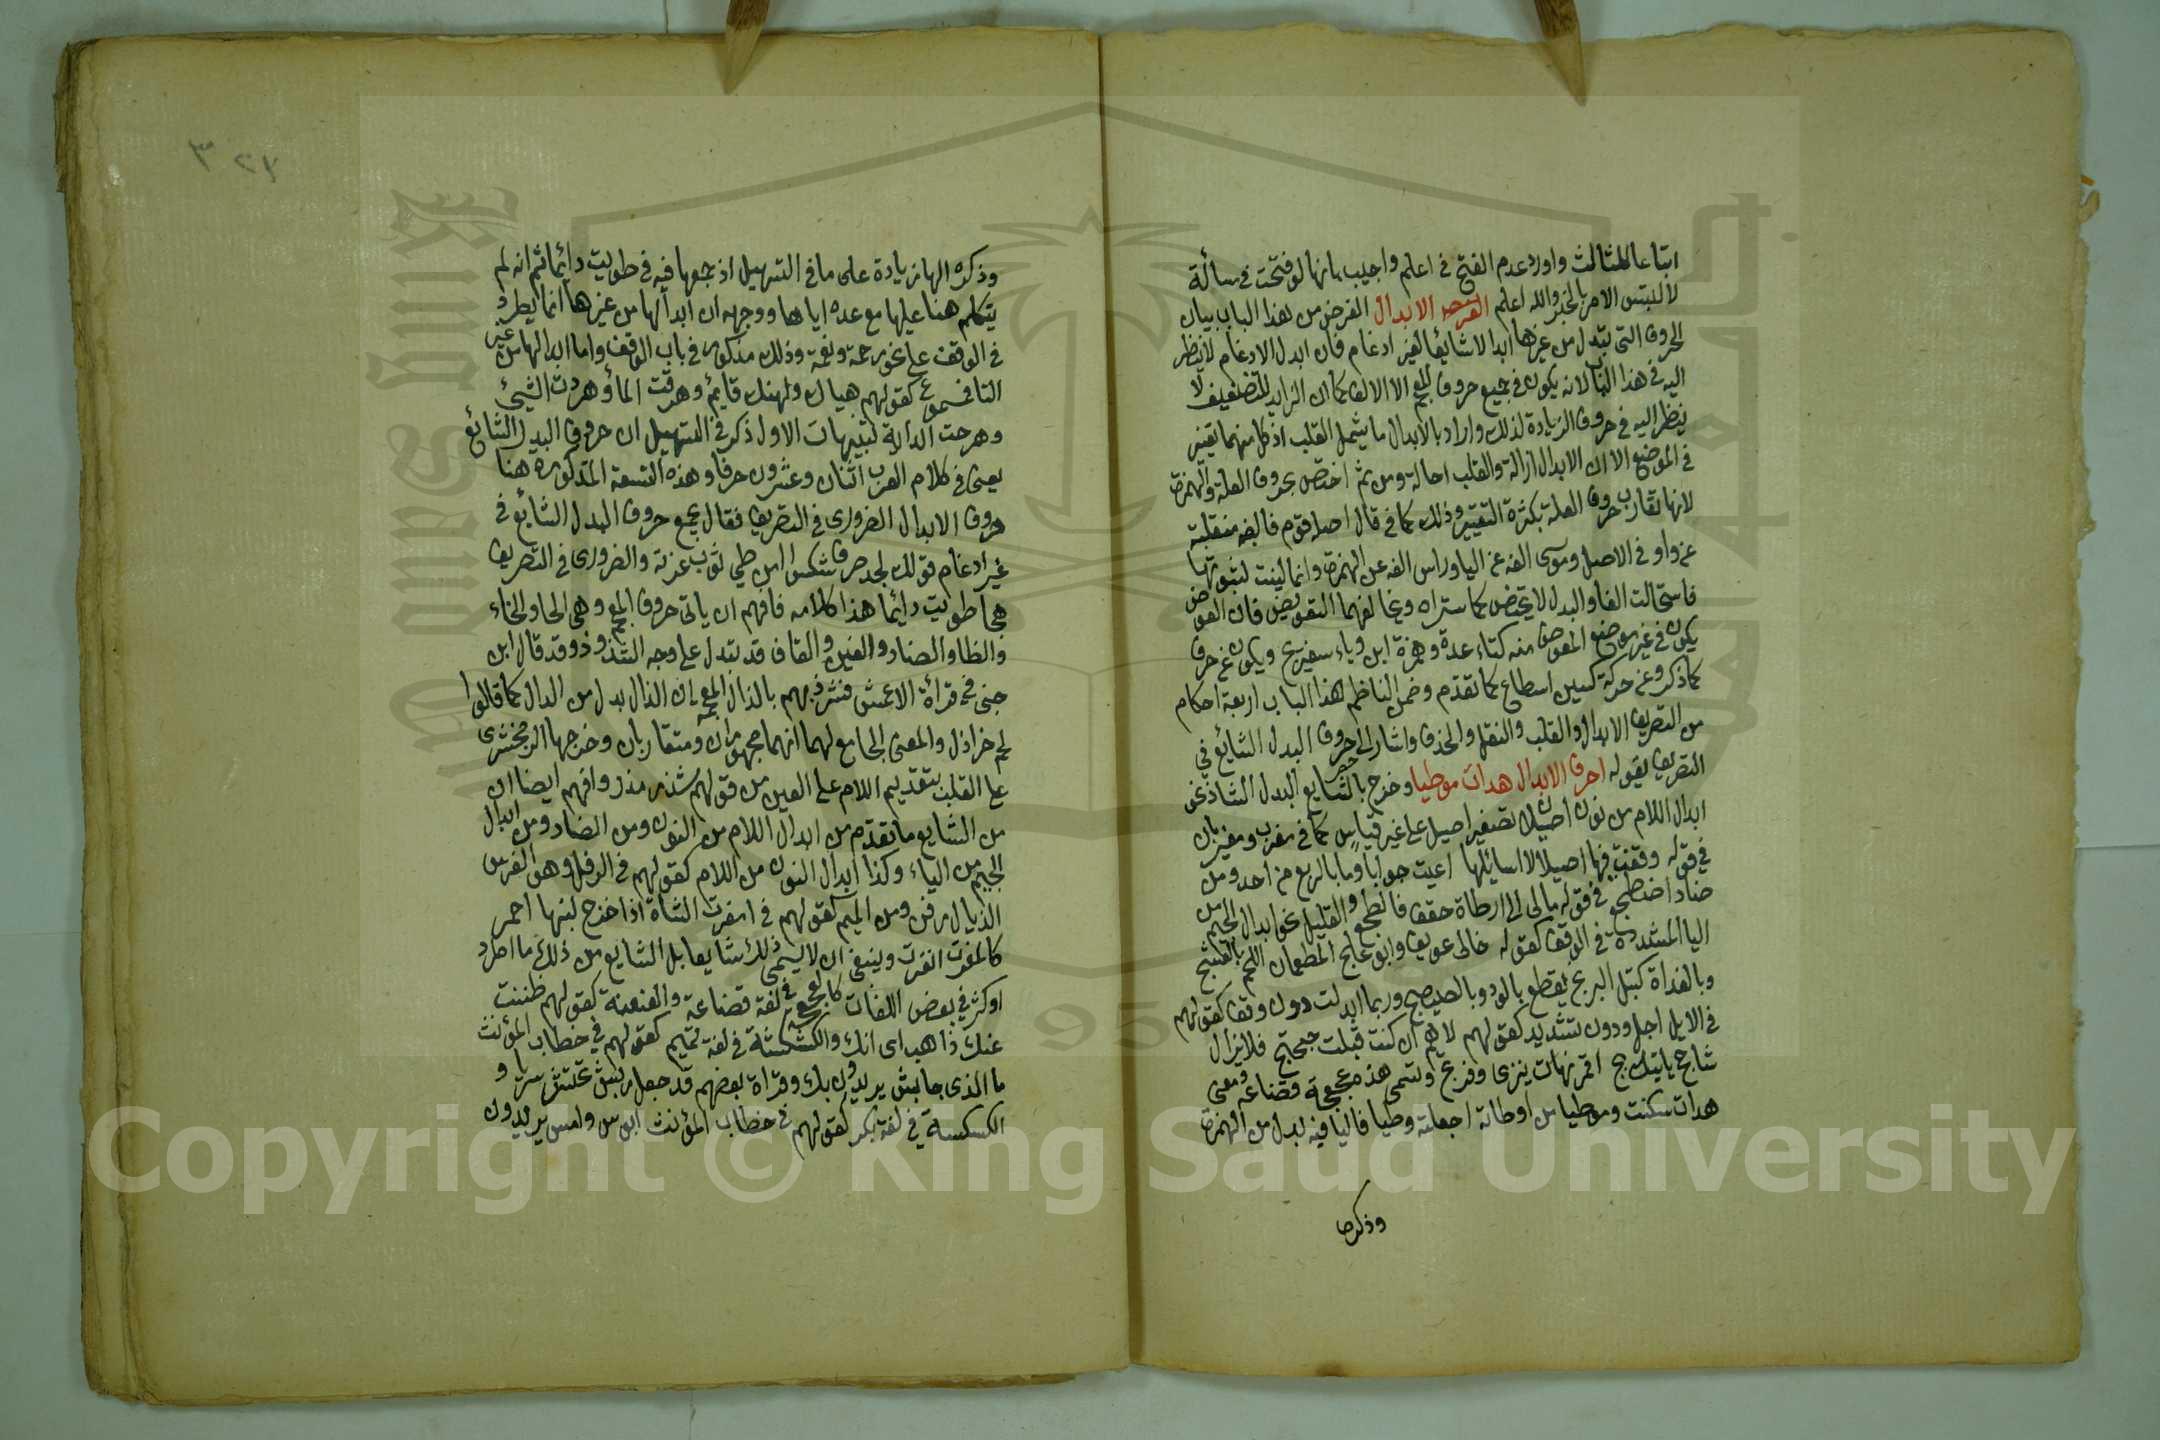 اتباعا للثالث واورد عدم الفتح في اعلم واجيب بانها لو فتحت في سألة
لالتبس الامر بالخبر والله اعلم الابدال الغرض من هذا الباب بيان
الحروف التي تبدل من غيرها ابدالا شايعا لغير ادغام فان ابدل الادغام لا ينظر
اليه في هذا الباب لانه يكون في جميع حروف المعجم الا الالف كما ان الزايد للتضعيف لا
ينظر اليه في حروف الزيادة لذلك واراد بالابدال ما يشمل القلب اذ كل منهما تغيير
في الموضع الا ان الابدال ازالة والقلب احالة ومن ثم اختص بحروف العلة والهمزة
لانها تقارب حروف العلة بكثرة التغيير وذلك كما في قال اصله قوم فالفه منقلبة
عن واو في الاصل وموسى الفه عن اليا وراس الفه عن الهمزة وانما لينت لنبوتها
فاستحالت الفا والبدل لا يختص كما ستراه ويخالفهما التعويض فان العوض
يكون في غير موضع المعوض منه كتاء عدة وهمزة ابن وياء سفيريج ويكون عن حرف
كما ذكر وعن حركة كسين اسطاع كما تقدم وضمن الناظم هذا الباب اربعة احكام
من التصريف الابدال والقلب والنقل والحذف واشار الى حروف البدل الشايع في
التصريف بقوله احرف الابدال هدات موطيا وخرج بالشايع البدل الشاذ نحو
ابدال اللام من نون اصيلان تصغير اصيل على غير قياس كما في مغرب ومغيربان
في قوله وقفت فيها اصيلالا اسائلها اعيت جوابا وما بالربع من احد ومن
ضاد اضطجع في قوله مالى الى ارطاة حقف فالطجع والقليل نحو ابدال الجيم من
اليا المشددة في الوقف كقوله خالى عويف وابو علج المطعمان اللحم بالعشج
وبالغداة كتل البرنج يقطع بالود وبالصيصج وربما ابدلت دون وقف كقولهم
في الايل اجل ودون تشديد كقولهم لاهم ان كنت قبلت حجتج فلا يزال
شاحج ياتيك بج اقمر نهات ينزى وفرتج وتسمى هذه عجعجة قضاعة ومعنى
هدات سكنت وموطيا من اوطاته اجعلته وطيا فاليا فيه بدل من الهمزة
وذكره
٣٢٧
وذكره الها زيادة على ما في التسهيل اذ جمعها فيه في طويت دائما ثم انه لم
يتكلم هنا عليها مع عده اياها ووجهه ان ابدالها من غيرها انما يطرد
في الوقف على نحو رحمة ونعمة وذلك مذكور في باب الوقف واما ابدالها من غير
التا فمسموع كقولهم هياك ولهنك قايم وهرقت الما وهردت الشيئ
وهرحت الدابة تنبيهات الاول ذكر في التسهيل ان حروف البدل الشائع
يعنى في كلام العرب اثنان وعشرون حرفا وهذه التسعة المذكورة هنا
حروف الابدال الضرورى في التصريف فقال يجمع حروف البدل الشايع في
غير ادغام قولك لجد صرف شكس امن طي ثوب عزته والضرورى في التصريف
هجا طويت دايما هذا كلامه فافهم ان ياتى حروف المعجم وهي الحا والخاء
والظا والضاد والغين والقاف قد تبدل على وجه الشذوذ وقد قال ابن
جنى في قرأة الاعمش فشرذ بهم بالذال المعجمة ان الذال بدل من الدال كما قالوا
لحم خراذل والمعنى الجامع لهما انهما مجهوران ومتقاربان وخرجها الزمخشرى
على القلب بتقديم اللام على العين من قولهم شذر مذر وافهم ايضا ان
من الشايع ما تقدم من ابدال اللام من النون ومن الضاد ومن ابدال
الجيم من الياء وكذا ابدال النون من اللام كقولهم في الرفل وهو الفرس
الذيال رفن ومن الميم كقولهم في امغرت الشاة اذا خرج لبنها احمر
كالمغرة انغرت وينبغى ان لا يسمى ذلك شايعا بل الشايع من ذلك ما اطرد
او كثر في بعض اللغات كالعجعجة في لغة قضاعة والعنعنة كقولهم ظننت
عنك ذاهب اى انك والكشكشة في لغة تميم كقولهم في خطاب المؤنث
ما الذى جابش يريدون بك وقراة بعضهم قد جعل ربش تحتش سريا و
الكسكسة في لغة بكر كقولهم في خطاب المؤنث ابوس وامس يريدون
Copyright © King Saud University